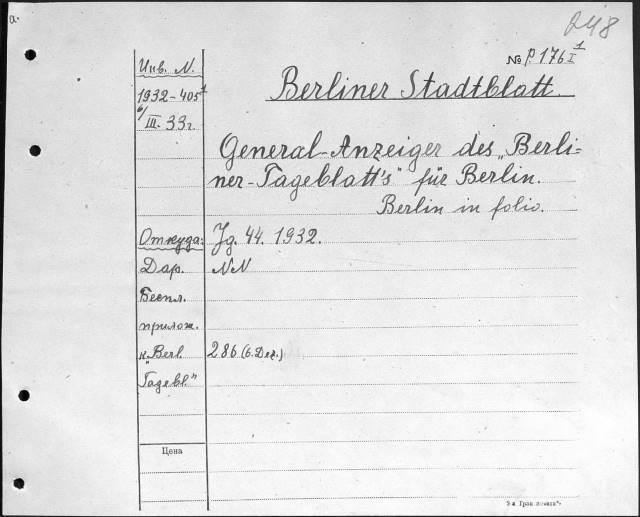 a.
248
№ P 176 1/I
Инв. N.
1932-405 1
Berliner Stadtblatt.
6/III. 33 г.
General-Anzeiger des „Berli=
ner-Tageblatt's" für Berlin.
Berlin in folio.
Откуда:
Jg. 44. 1932.
Дар.
NN
Беспл.
прилож.
к „Berl.
286 (6. Dez.)
Tagebl."
Цена